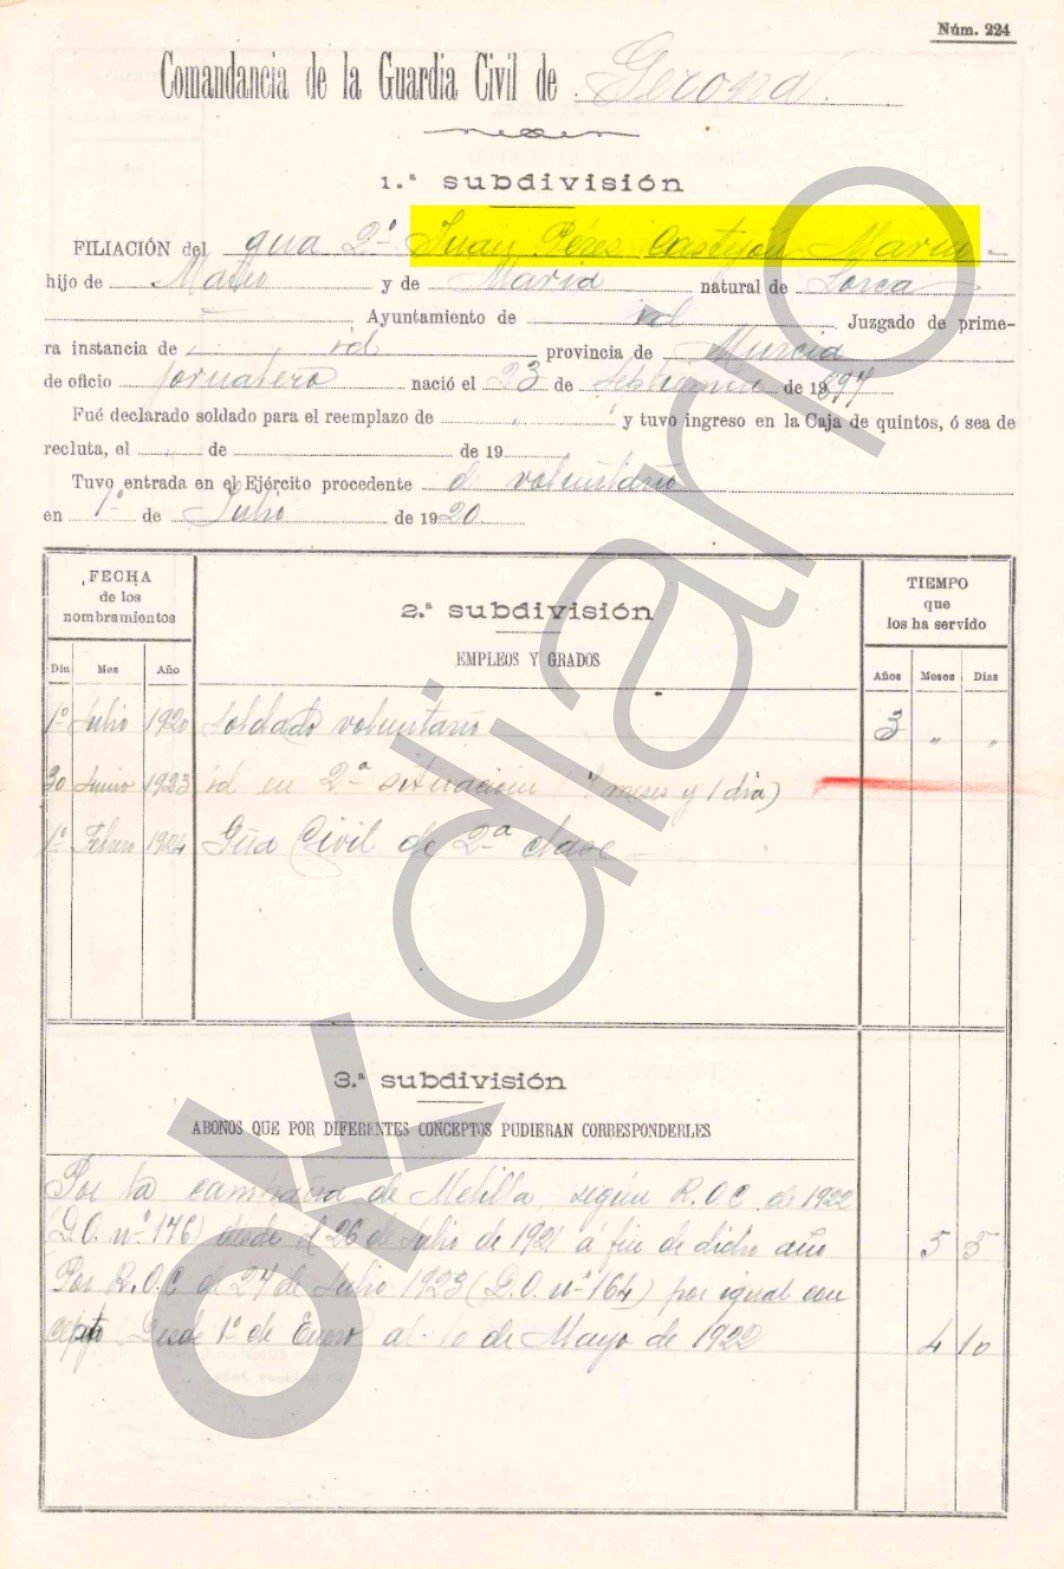 Núm. 224
Comandancia de la Guardia Civil de Gerona.
1.ª subdivisión
FILIACIÓN del gua 2º Juan Pérez Castejón Marin
hijo de Mateo y de Maria natural de Lorca
Ayuntamiento de id Juzgado de prime-
ra instancia de id provincia de Murcia
de oficio Jornalero nació el 23 de Septiembre de 1897
Fué declarado soldado para el reemplazo de " y tuvo ingreso en la Caja de quintos, ó sea de
recluta, el de de 19
Tuvo entrada en el Ejército procedente d voluntario
en 1º de Julio de 1920
FECHA
de los
nombramientos
2.ª subdivisión
TIEMPO
que
los ha servido
EMPLEOS Y GRADOS
Día Mes Año
Años Meses Días
1º Julio 1920 Soldado voluntario 3 " "
30 Junio 1923 id en 2ª situación (7 meses y 1 dia)
1º Febrero 1924 Gúa Civil de 2ª clase
3.ª subdivisión
ABONOS QUE POR DIFERENTES CONCEPTOS PUDIERAN CORRESPONDERLES
Por la campaña de Melilla, según R.O.C. de 1922
(D.O. nº 176) desde el 26 de Julio de 1921 á fin de dicho año 5 5
Por R.O.C de 27 de Julio 1923 (D.O. nº 164) por igual con
cepto Desde 1º de Enero al 10 de Mayo de 1922 4 10
okdiario